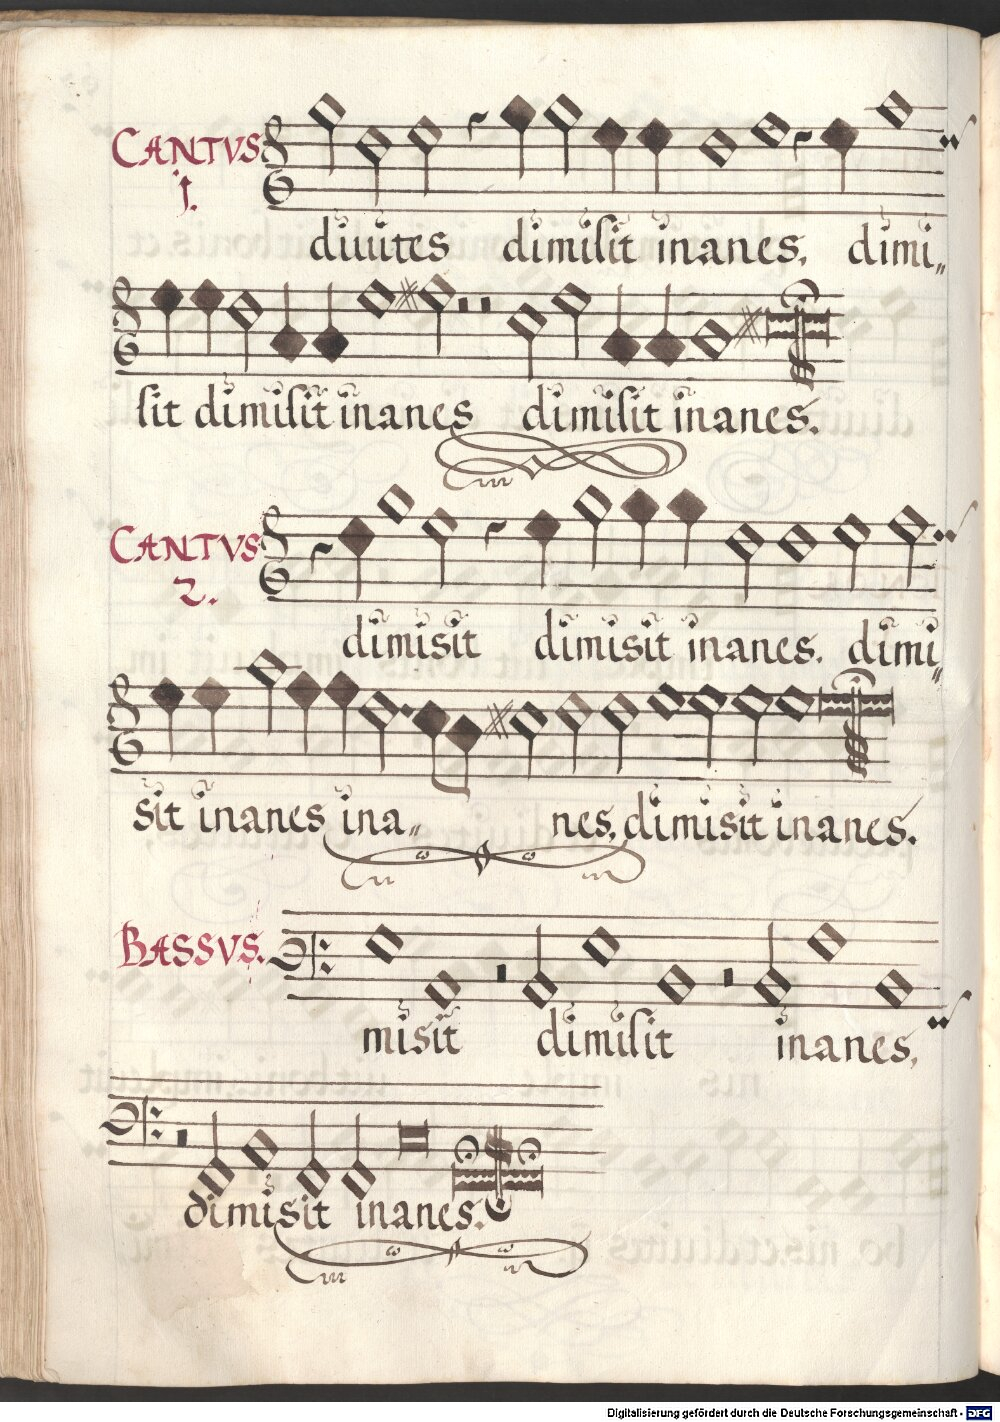 CANTVS
1.
diuites dimisit inanes. dimi„
sit dimisit inanes dimisit inanes.
CANTVS
2.
dimisit dimisit inanes. dimi„
sit inanes ina„ nes, dimisit inanes.
BASSVS.
misit dimisit inanes,
dimisit inanes.
Digitalisierung gefördert durch die Deutsche Forschungsgemeinschaft - DFG